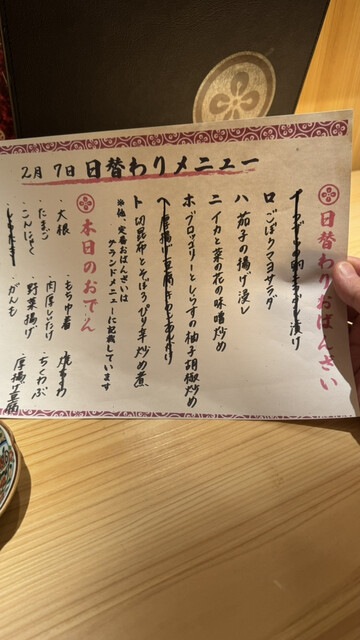 2月 7日 日替わりメニュー
日替わりおばんざい
ロ ごぼうマヨサラダ
ハ 茄子の揚げ浸し
ニ イカと菜の花の味噌炒め
ホ ブロッコリーとしらすの柚子胡椒炒め
ト 切昆布とそぼろぴり辛炒め煮
※他、定番おばんざいは
グランドメニューに記載しています
本日のおでん
・大根 ・もち巾着
・たまご ・肉厚しいたけ ・ちくわぶ
・こんにゃく ・野菜揚げ ・厚揚げ豆腐
・がんも